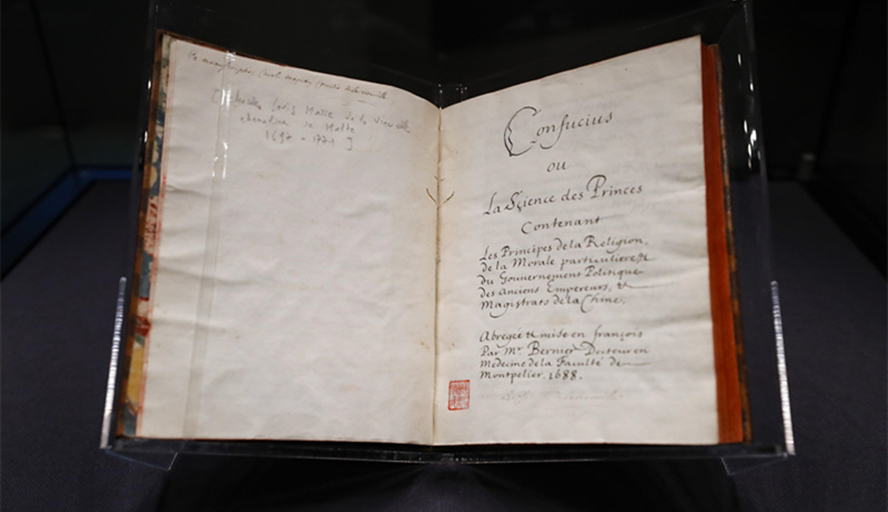 Ce manuscript
de la Vieuville
chevalier de Malte
]
Confucius
ou
La Sçience des Princes
Contenant
Les Principes de la Religion,
de la Morale particuliere &
du Gouvernement Politique
des anciens Empereurs, &
Magistrats de la Chine,
Abregée & mise en françois
Par Mr. Bernier Docteur en
Medecine de la Faculté de
Montpelier. 1688.